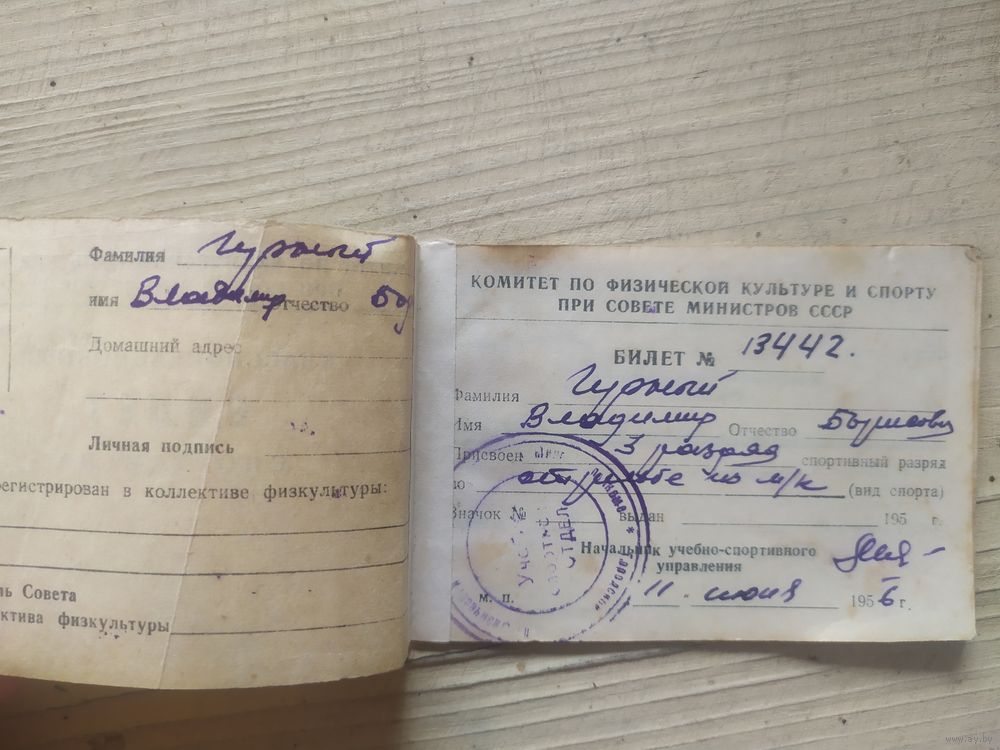 Фамилия
имя Владимир отчество
Домашний адрес
Личная подпись
регистрирован в коллективе физкультуры:
ль Совета
ктива физкультуры
КОМИТЕТ ПО ФИЗИЧЕСКОЙ КУЛЬТУРЕ И СПОРТУ
ПРИ СОВЕТЕ МИНИСТРОВ СССР
БИЛЕТ № 13442.
Фамилия
Имя Владимир Отчество
Присвоен 3 разряд спортивный разряд
по по м/к (вид спорта)
Значок № выдан 195 г.
Начальник учебно-спортивного
управления
м. п. 11. июня 1956 г.
ОТДЕЛ
www.ay.by